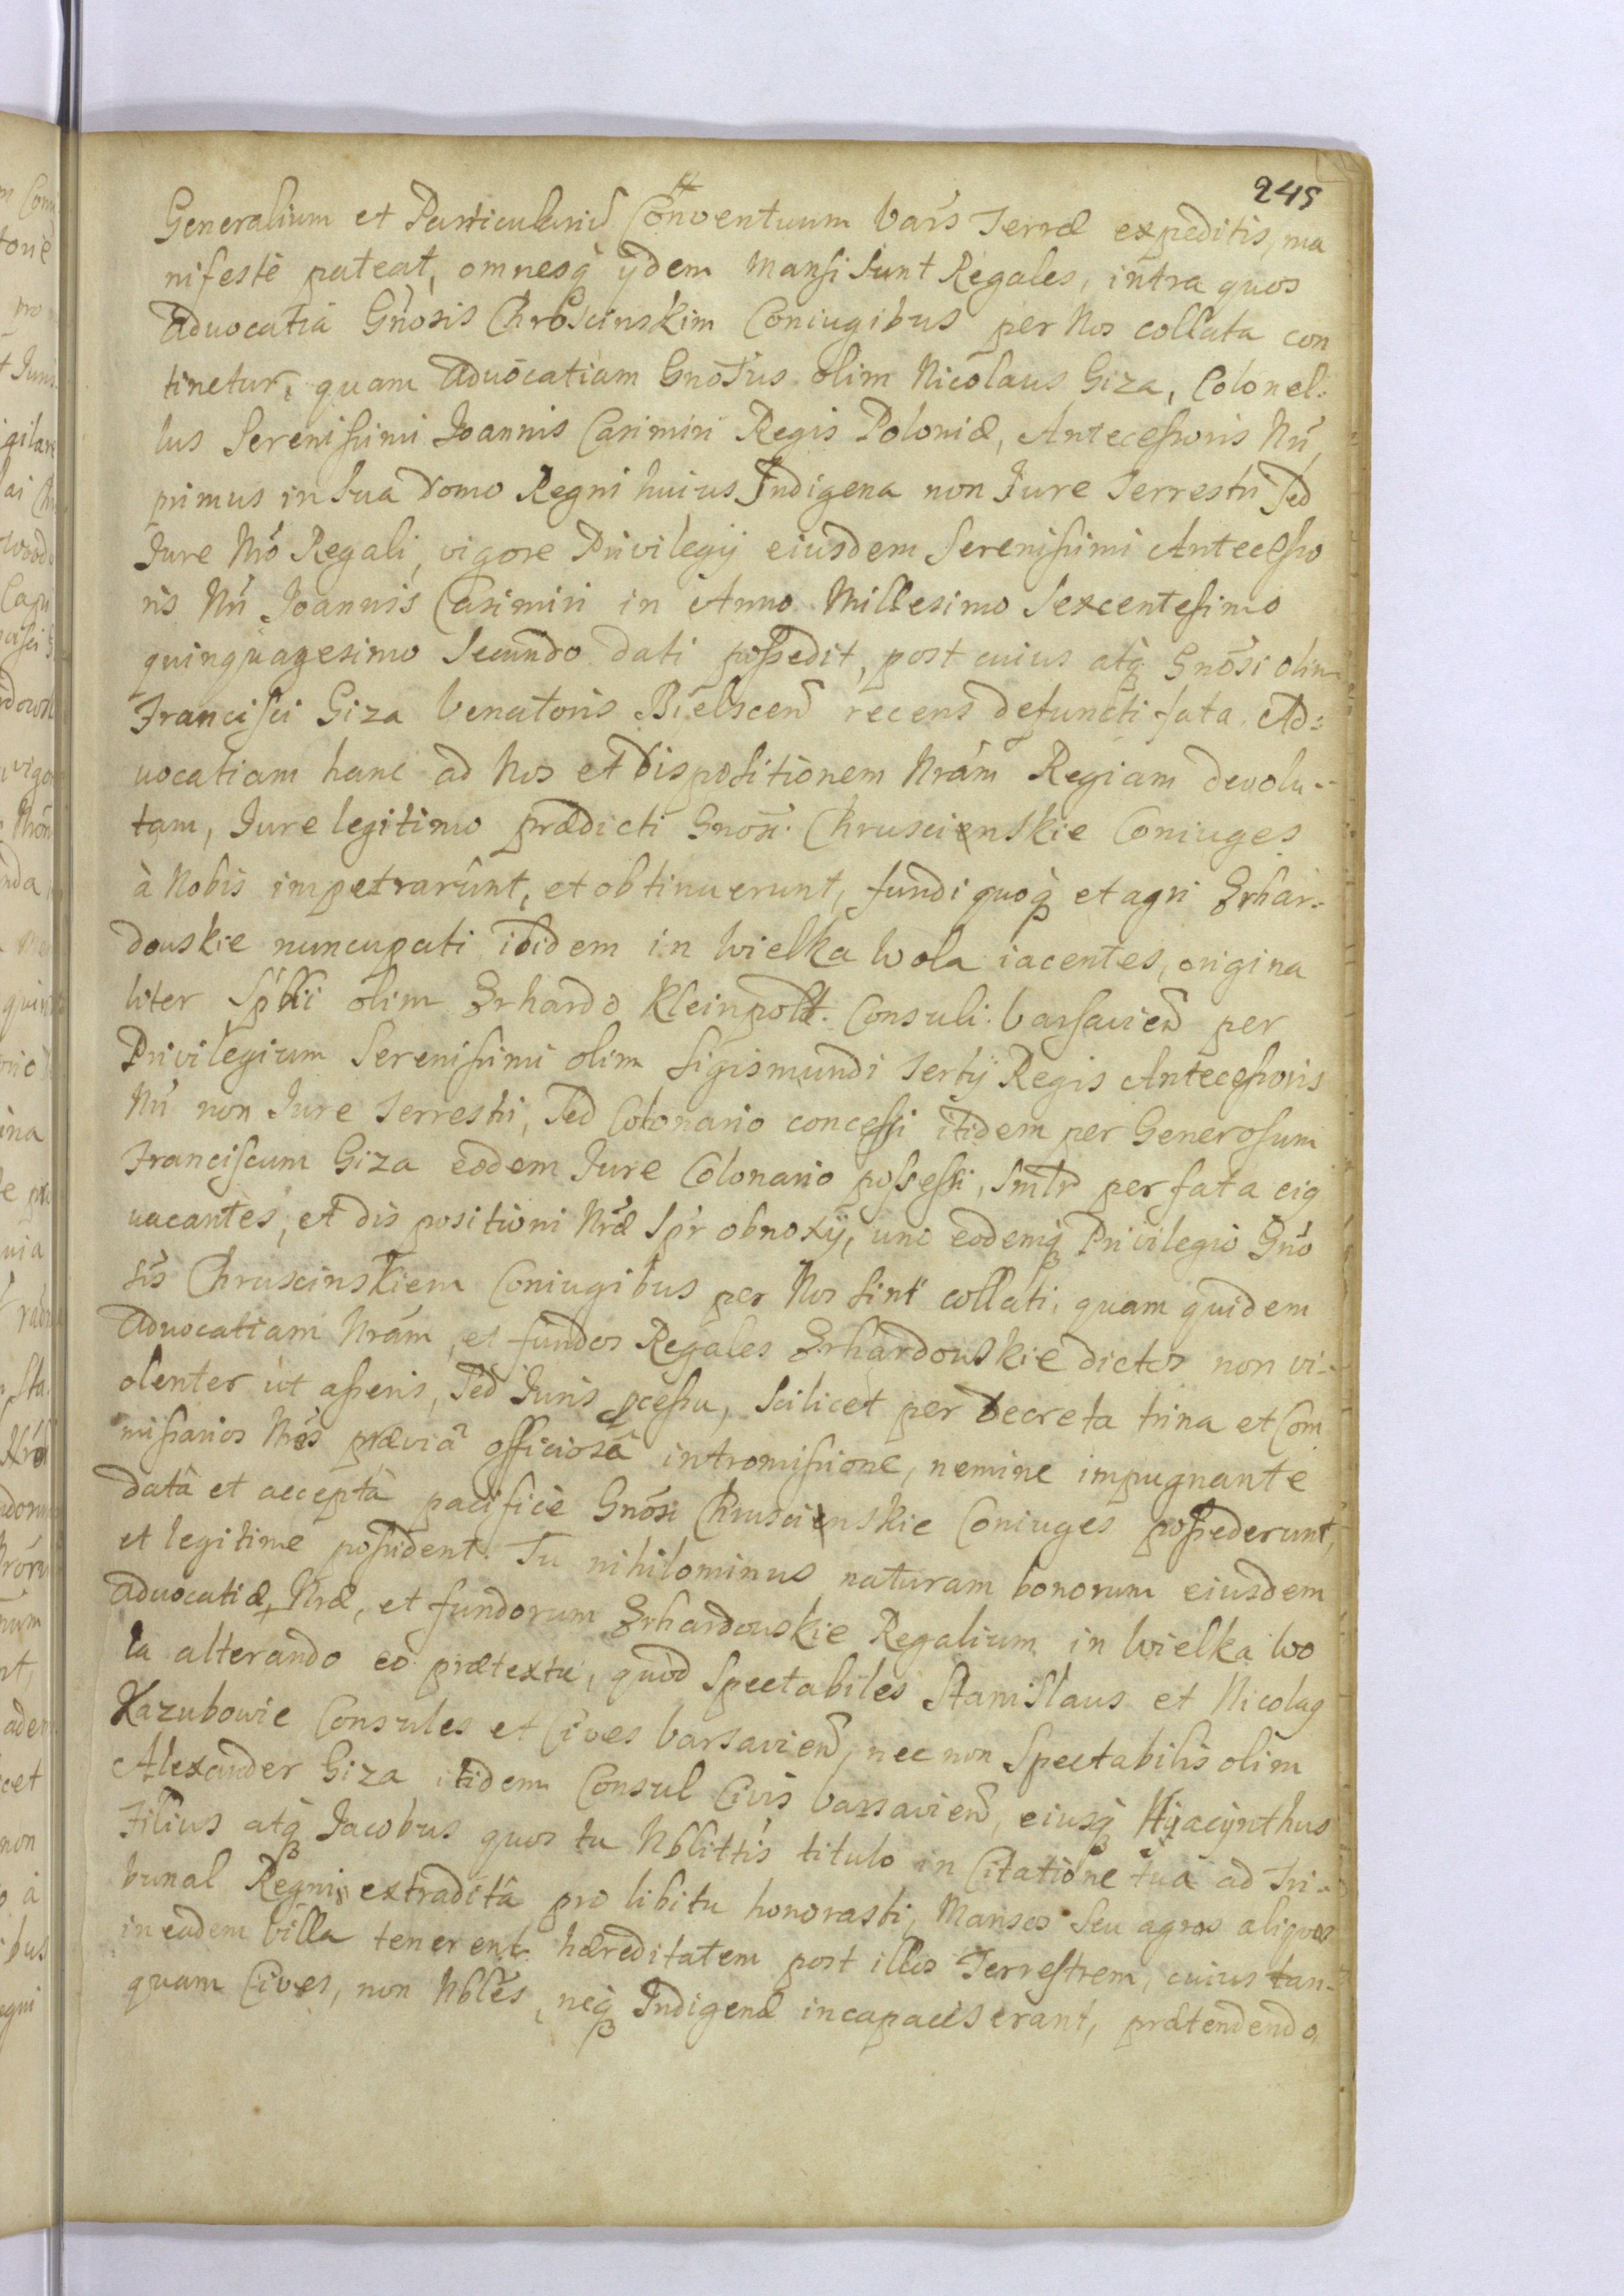 245
Generalium et Particulariũ Conventuum Vars Terræ expeditis, ma
nifestè pateat, omnesq ijdem Mansi sunt Regales, intra quos
Advocatia Gnosis Chroscinskim Coniugibus per Nos collata con
tinetur, quam Advocatiam Gnosus olim Nicolaus Giza, Colonel:
lus Serenissimi Joannis Casimiri Regis Poloniæ, Antecessoris Nri,
primus in sua domo Regni huius Indigena non Jure Terrestri sed
Jure Nro Regali, vigore Privilegij eiusdem Serenissimi Antecesso
ris Nri Joannis Casimiri in Anno Millesimo Sexcentesimo
quinquagesimo Secundo dati possedit, post cuius atq Gnosi olim
Francisci Giza Venatoris Bielscen recens defuncti fata Ad:
uocatiam hanc ad Nos et dispositionem Nram Regiam devolu-
tam, Jure legitimo prædicti Gnosi Chruscienskie Coniuges
à Nobis impetrarunt, et obtinuerunt, fundi quoq et agri Erhar-
douskie nuncupati ibidem in Wielka Wola iacentes, origina
liter Spbli olim Erhardo Kleinpolt Consuli Varsavien per
Privilegium Serenissimi olim Sigismundi Tertij Regis Antecessoris
Nri non Jure Terrestri, sed Colonario concessi itidem per Generosum
Franciscum Giza eodem Jure Colonario possessi, Smlr per fata eig
uacantes, et dispositioni Nræ Spr obnoxij, uno eodemq Privilegio Gno
sis Chruscinskiem Coniugibus per Nos sint collati, quam quidem
Advocatiam Nram, et fundos Regales Erhardouskie dictos non vi-
olenter ut asseris, sed Juris pcessu, scilicet per Decreta trina et Com
missarios Nros præviâ officiosâ intromissione, nemine impugnante
datâ et acceptâ pacifice Gnosi Chruscienskie Coniuges possederunt,
et legitime possident. Tu nihilominus naturam bonorum eiusdem
Advocatiæ Nræ, et fundorum Erhardouskie Regalium in Wielka Wo
la alterando eo prætextu, quod Spectabiles Stanislaus et Nicolag
Kazubowie Consules et Cives Varsavien, nec non Spectabilis olim
Alexander Giza itidem Consul Civis Varsavien, eiusq Hyacynthus
Filius atq Jacobus quos tu Nblittis titulo in Citatione tua ad Tri-
bunal Regni extraditâ pro libitu honorasti, Mansos seu agros aliquos
in eadem Villa tenerent hæreditatem post illos Terrestrem, cuius tan-
quam Cives, non Nbles, neq Indigenæ incapaces erant, prætendendo